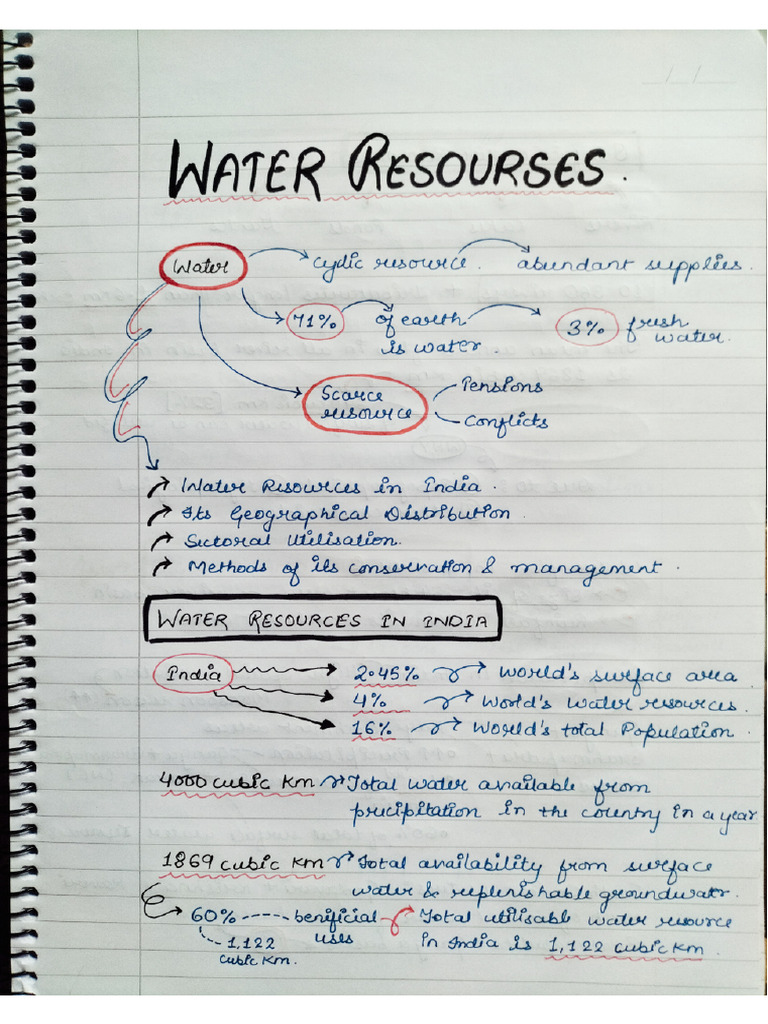 WATER RESOURSES.
Water → cyclic resource. → abundant supplies.
71% → of earth is water. → 3% fresh water.
Scarce resource
Pensions
Conflicts
Water Resources in India.
Its Geographical Distribution.
Sectoral Utilisation.
Methods of its conservation & management.
WATER RESOURCES IN INDIA
India → 2.45% → World's surface area
4% → World's water resources.
16% → World's total Population.
4000 cubic km → Total water available from
precipitation in the country in a year
1869 cubic km → Total availability from surface
water & replenishable groundwatr.
60% ---- benificial uses
1,122 cubic km.
Total utilisable water resource
in India is 1,122 cubic km.